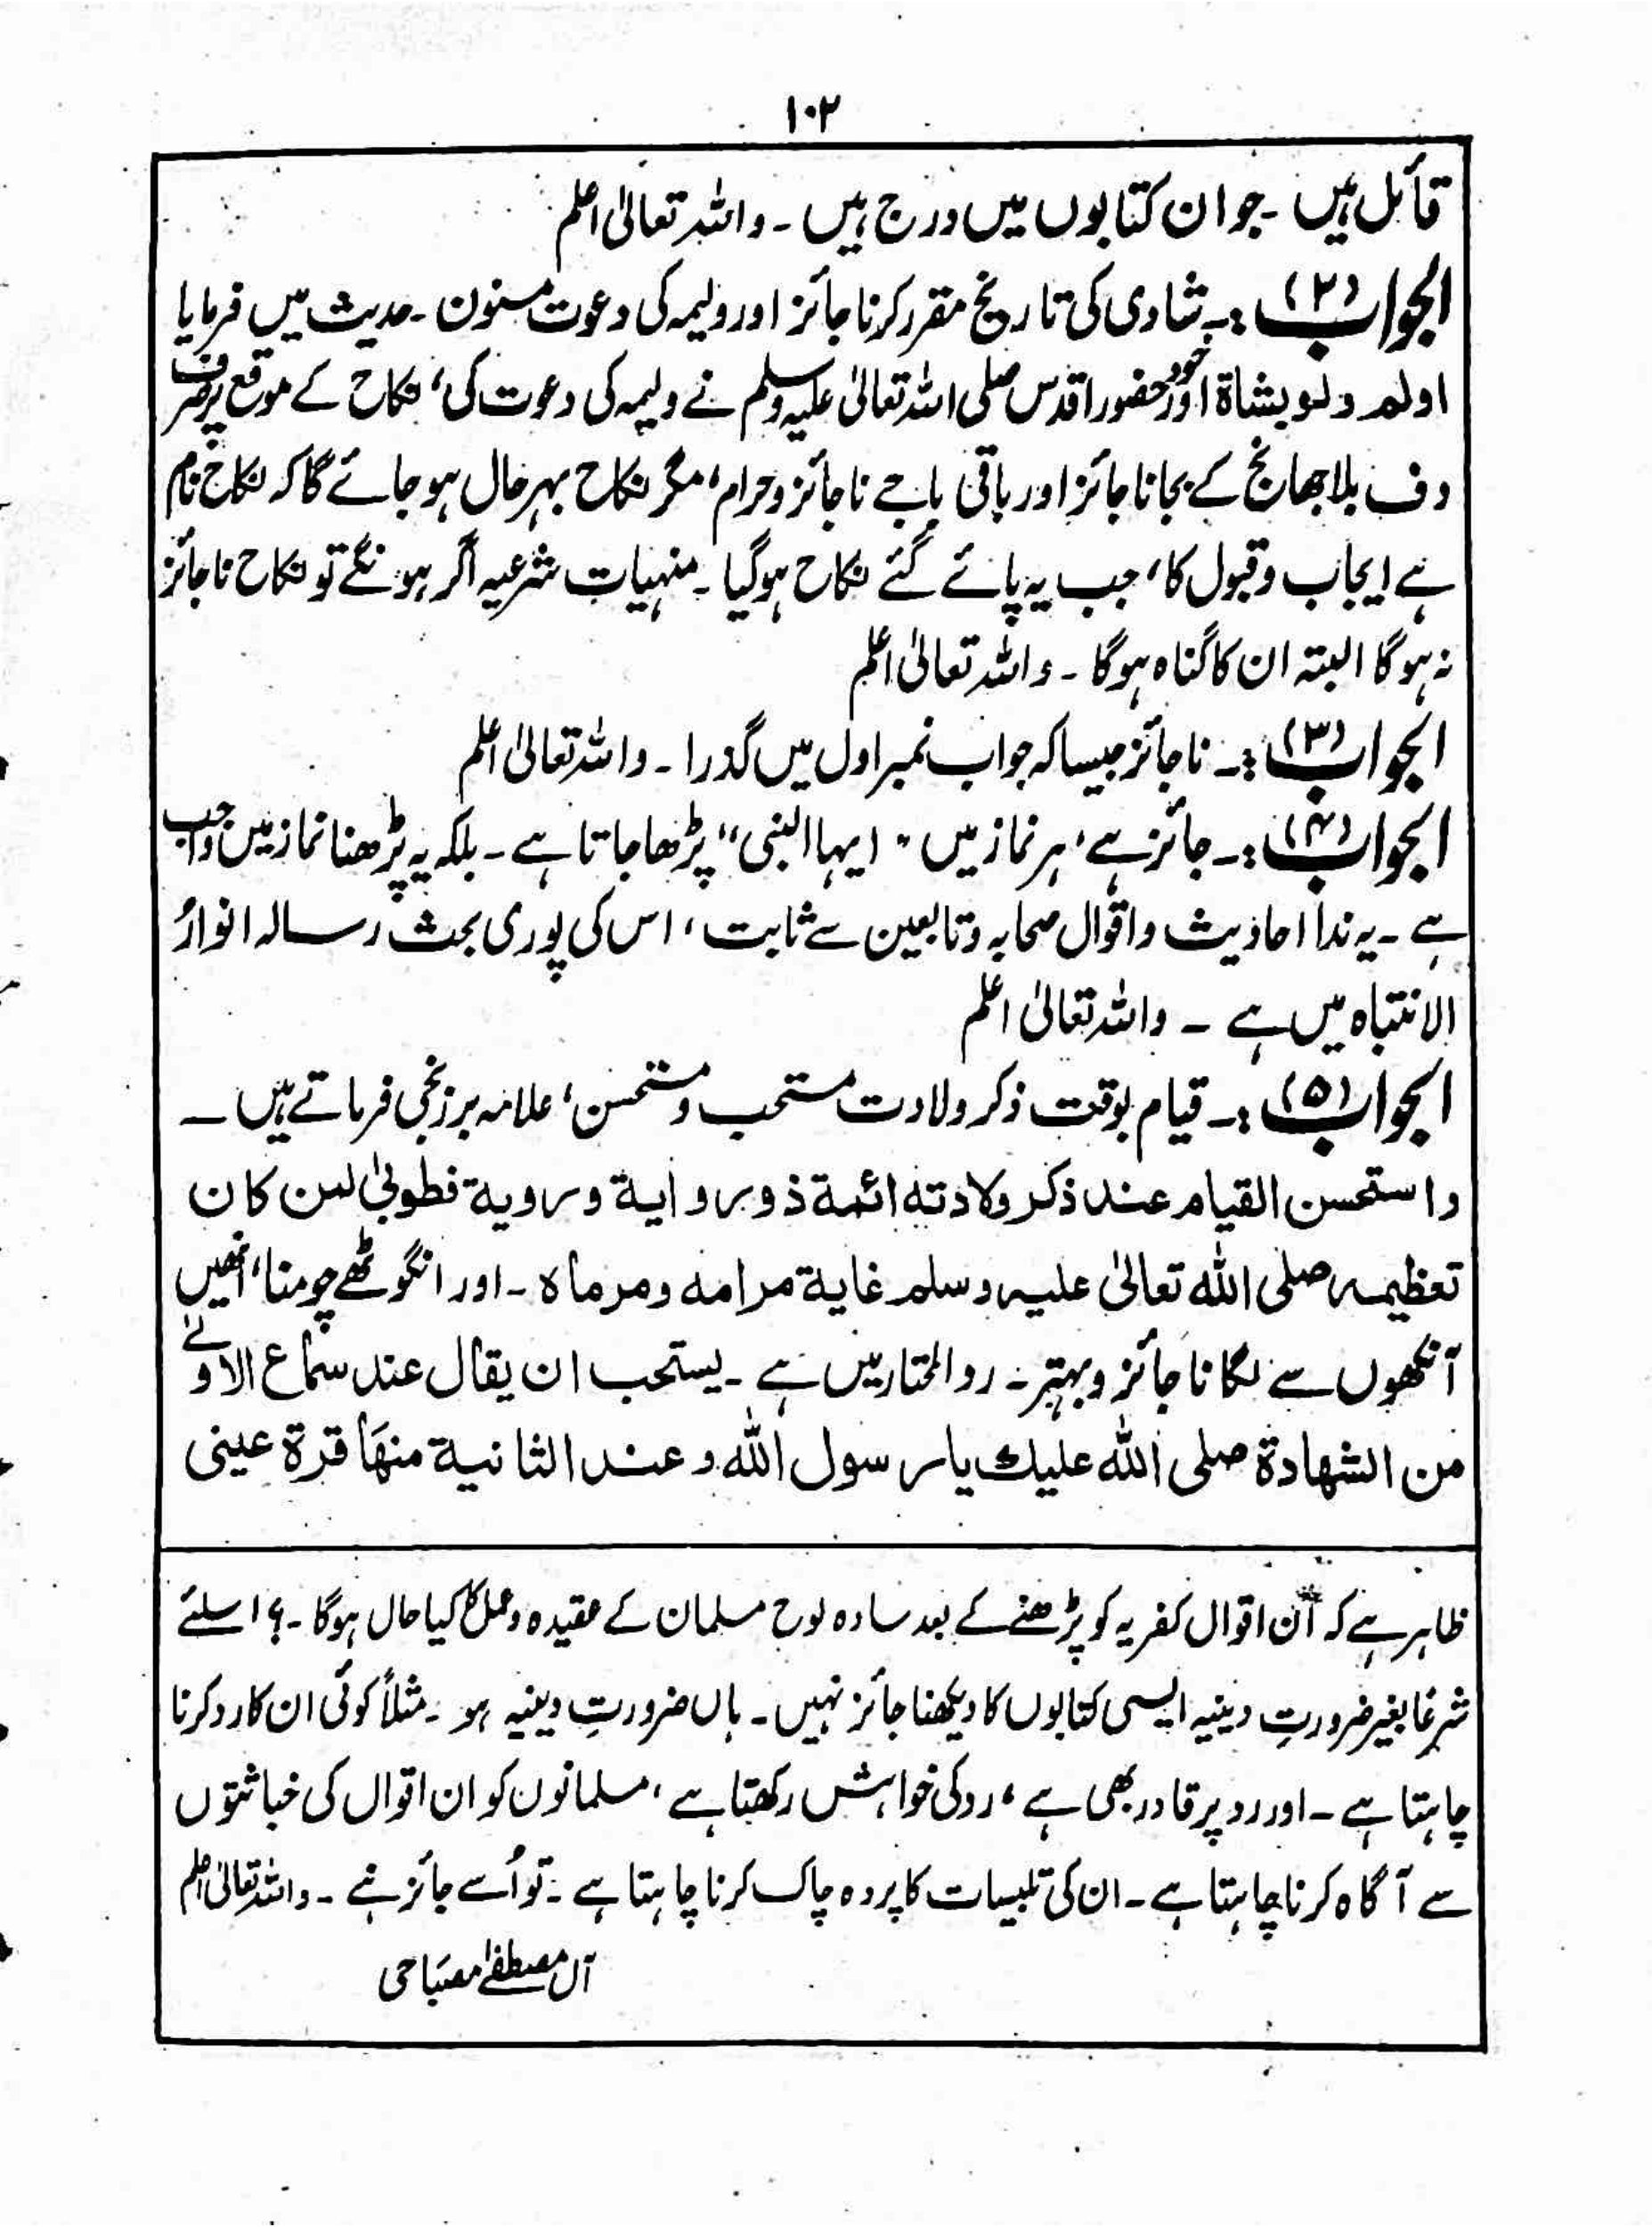 ۱۰۲
قائل ہیں ۔ جو ان کتابوں میں درج ہیں ۔ واللہ تعالیٰ اعلم
الجواب (۲) :۔ شادی کی تاریخ مقرر کرنا جائز اور ولیمہ کی دعوت مسنون ۔ حدیث میں فرمایا
اولم ولو بشاة اور خود حضور اقدس صلی اللہ تعالیٰ علیہ وسلم نے ولیمہ کی دعوت کی، نکاح کے موقع پر صرف
دف بلا جھانج کے بجانا جائز اور باقی باجے ناجائز وحرام، مگر نکاح بہرحال ہو جائے گا کہ نکاح نام
ہے ایجاب وقبول کا، جب یہ پائے گئے نکاح ہوگیا ۔ منہیاتِ شرعیہ اگر ہونگے تو نکاح ناجائز
نہ ہوگا البتہ ان کا گناہ ہوگا ۔ واللہ تعالیٰ اعلم
الجواب (۳) :۔ ناجائز جیسا کہ جواب نمبر اول میں گذرا ۔ واللہ تعالیٰ اعلم
الجواب (۴) :۔ جائز ہے، ہر نماز میں "ایہا النبی" پڑھا جاتا ہے ۔ بلکہ یہ پڑھنا نماز میں واجب
ہے ۔ یہ ندا احادیث واقوال صحابہ وتابعین سے ثابت، اس کی پوری بحث رسالہ انوارُ
الانتباہ میں ہے ۔ واللہ تعالیٰ اعلم
الجواب (۵) :۔ قیام بوقت ذکر ولادت مستحب ومستحسن، علامہ برزنجی فرماتے ہیں ۔
واستحسن القیام عند ذکر ولادتہ ائمة ذو روایة ورویة فطوبیٰ لمن کان
تعظیمہ صلی اللہ تعالیٰ علیہ وسلم غایة مرامہ ومرماہ ۔ اور انگوٹھے چومنا، انھیں
آنکھوں سے لگانا جائز وبہتر ۔ ردالمحتار میں ہے ۔ یستحب ان یقال عند سماع الاولیٰ
من الشہادة صلی اللہ علیک یا رسول اللہ وعند الثانیة منھَا قرة عینی
ظاہر ہے کہ ان اقوال کفریہ کو پڑھنے کے بعد سادہ لوح مسلمان کے عقیدہ وعمل کا کیا حال ہوگا ۔؟ اسلئے
شرعًا بغیر ضرورتِ دینیہ ایسی کتابوں کا دیکھنا جائز نہیں ۔ ہاں ضرورتِ دینیہ ہو ۔ مثلاً کوئی ان کا رد کرنا
چاہتا ہے ۔ اور رد پر قادر بھی ہے، رد کی خواہش رکھتا ہے، مسلمانوں کو ان اقوال کی خباثتوں
سے آگاہ کرنا چاہتا ہے ۔ ان کی تلبیسات کا پردہ چاک کرنا چاہتا ہے ۔ تو اُسے جائز ہے ۔ واللہ تعالیٰ اعلم
آل مصطفےٰ مصباحی